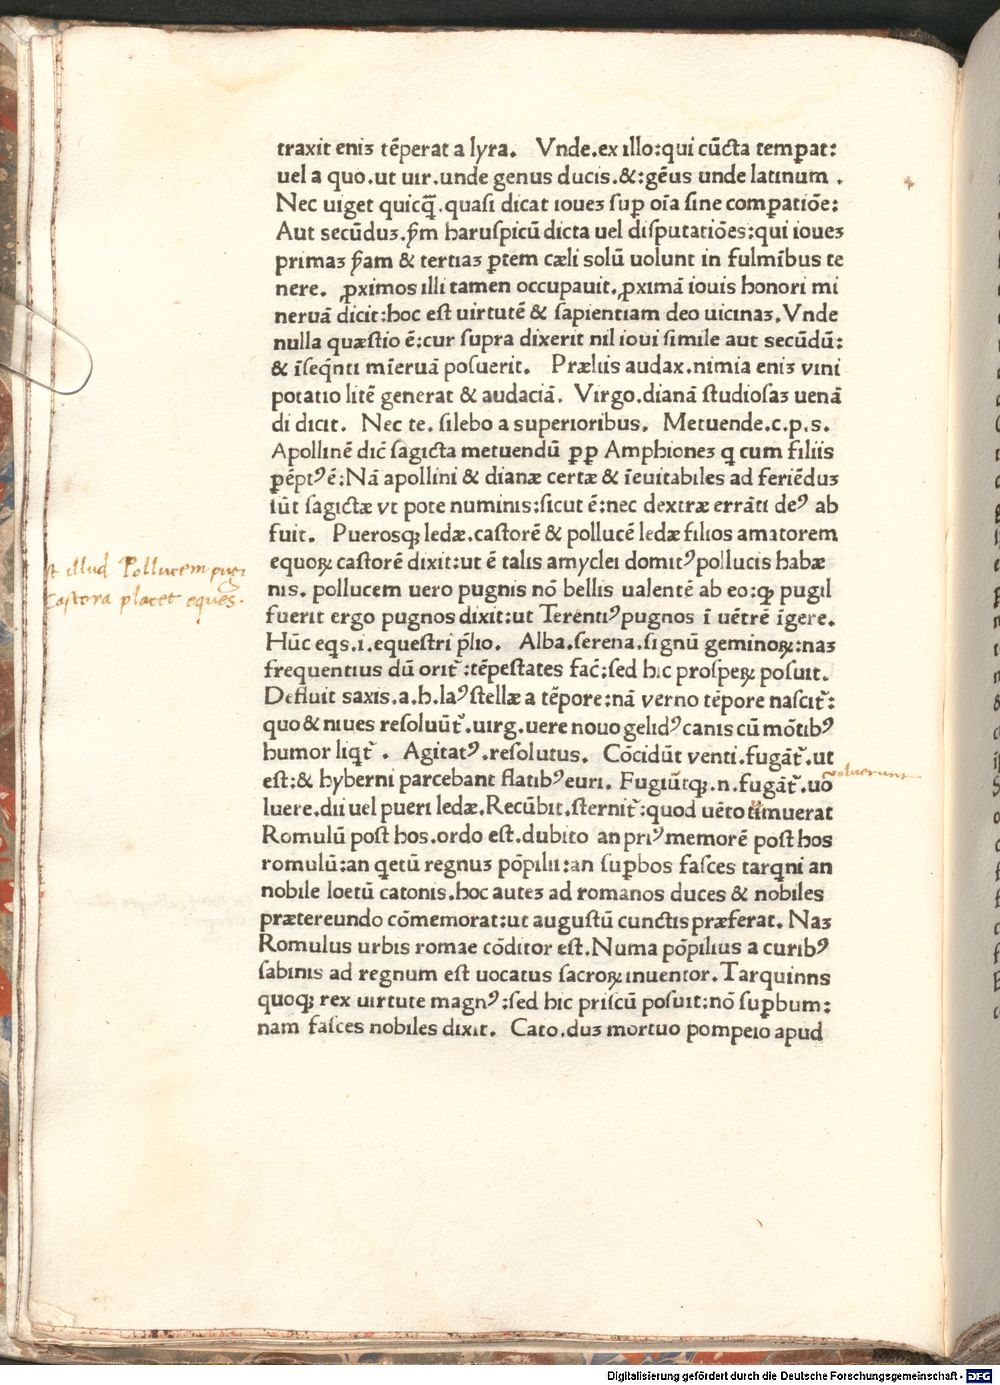 traxit eniʒ tēperat a lyra. Vnde.ex illo:qui cūcta temꝑat:
uel a quo.ut uir.unde genus ducis.&:gēus unde latinum .
Nec uiget quicq̄.quasi dicat ioueʒ suꝑ oīa sine comꝑatiōe:
Aut secūduʒ.p̄m haruspicū dicta uel disputatiōes:qui ioueʒ
primaʒ p̄am & tertiaʒ ꝑtem cæli solū uolunt in fulmībus te
nere. ꝓximos illi tamen occupauit.ꝓximā iouis honori mi
neruā dicit:hoc est uirtutē & sapientiam deo uicinaʒ.Vnde
nulla quæstio ē:cur supra dixerit nil ioui simile aut secūdū:
& īseq̄nti mīeruā posuerit. Præliis audax.nimia eniʒ vini
potatio litē generat & audaciā. Virgo.dianā studiosaʒ uenā
di dicit. Nec te.silebo a superioribus. Metuende.c.p.s.
Apollinē dic̄ sagicta metuendū ꝓꝑ Amphioneʒ q cum filiis
ꝑēptꝰ ē:Nā apollini & dianæ certæ & īeuitabiles ad feriēduʒ
sūt sagictæ vt pote numinis:sicut ē:nec dextræ errāti deꝰ ab
fuit. Puerosqꝫ ledæ.castorē & pollucē ledæ filios amatorem
equoꝝ castorē dixit:ut ē talis amyclei domitꝰ pollucis habæ
nis. pollucem uero pugnis nō bellis ualentē ab eo:qꝫ pugil
fuerit ergo pugnos dixit:ut Terentiꝰ pugnos ī uētrē īgere.
Hūc eqs.i.equestri p̄lio. Alba.serena.signū geminoꝝ:naʒ
frequentius dū orit̄:tēpestates fac̄:sed hic prospeꝝ posuit.
Defluit saxis.a.h.laꝰ stellæ a tēpore:nā verno tēpore nascit̄:
quo & niues resoluūt̄.uirg.uere nouo gelidꝰ canis cū mōtibꝰ
humor liqt̄ . Agitatꝰ.resolutus. Cōcidūt venti.fugāt̄.ut
est:& hyberni parcebant flatibꝰ euri. Fugiūtqꝫ.n.fugāt̄.uo
luere.dii uel pueri ledæ.Recūbit.sternit̄:quod uēto timuerat
Romulū post hos.ordo est.dubito an priꝰ memorē post hos
romulū:an qetū regnuʒ pōpilii:an suꝑbos fasces tarqni an
nobile loetū catonis.hoc auteʒ ad romanos duces & nobiles
prætereundo cōmemorat:ut augustū cunctis præferat. Naʒ
Romulus urbis romae cōditor est.Numa pōpilius a curibꝰ
sabinis ad regnum est uocatus sacroꝝ inuentor.Tarquinns
quoqꝫ rex uirtute magnꝰ:sed hic priscū posuit:nō suꝑbum:
nam fasces nobiles dixit. Cato.duʒ mortuo pompeio apud
illud Pollucem
Castora placet eques.
voluerunt
Digitalisierung gefördert durch die Deutsche Forschungsgemeinschaft - DFG